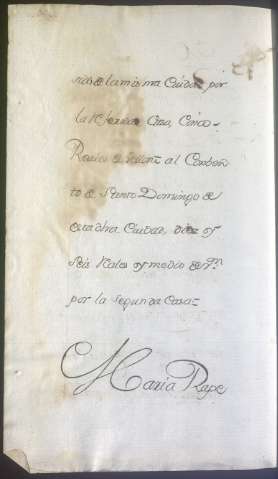 rios de la misma Ciudad por
la referida Casa, Cinco
Reales de vellon al Conben
to de Santo Domingo de
esta dha Ciudad, diez y
seis Reales y medio de Vn
por la segunda Casa=
Maria Rape